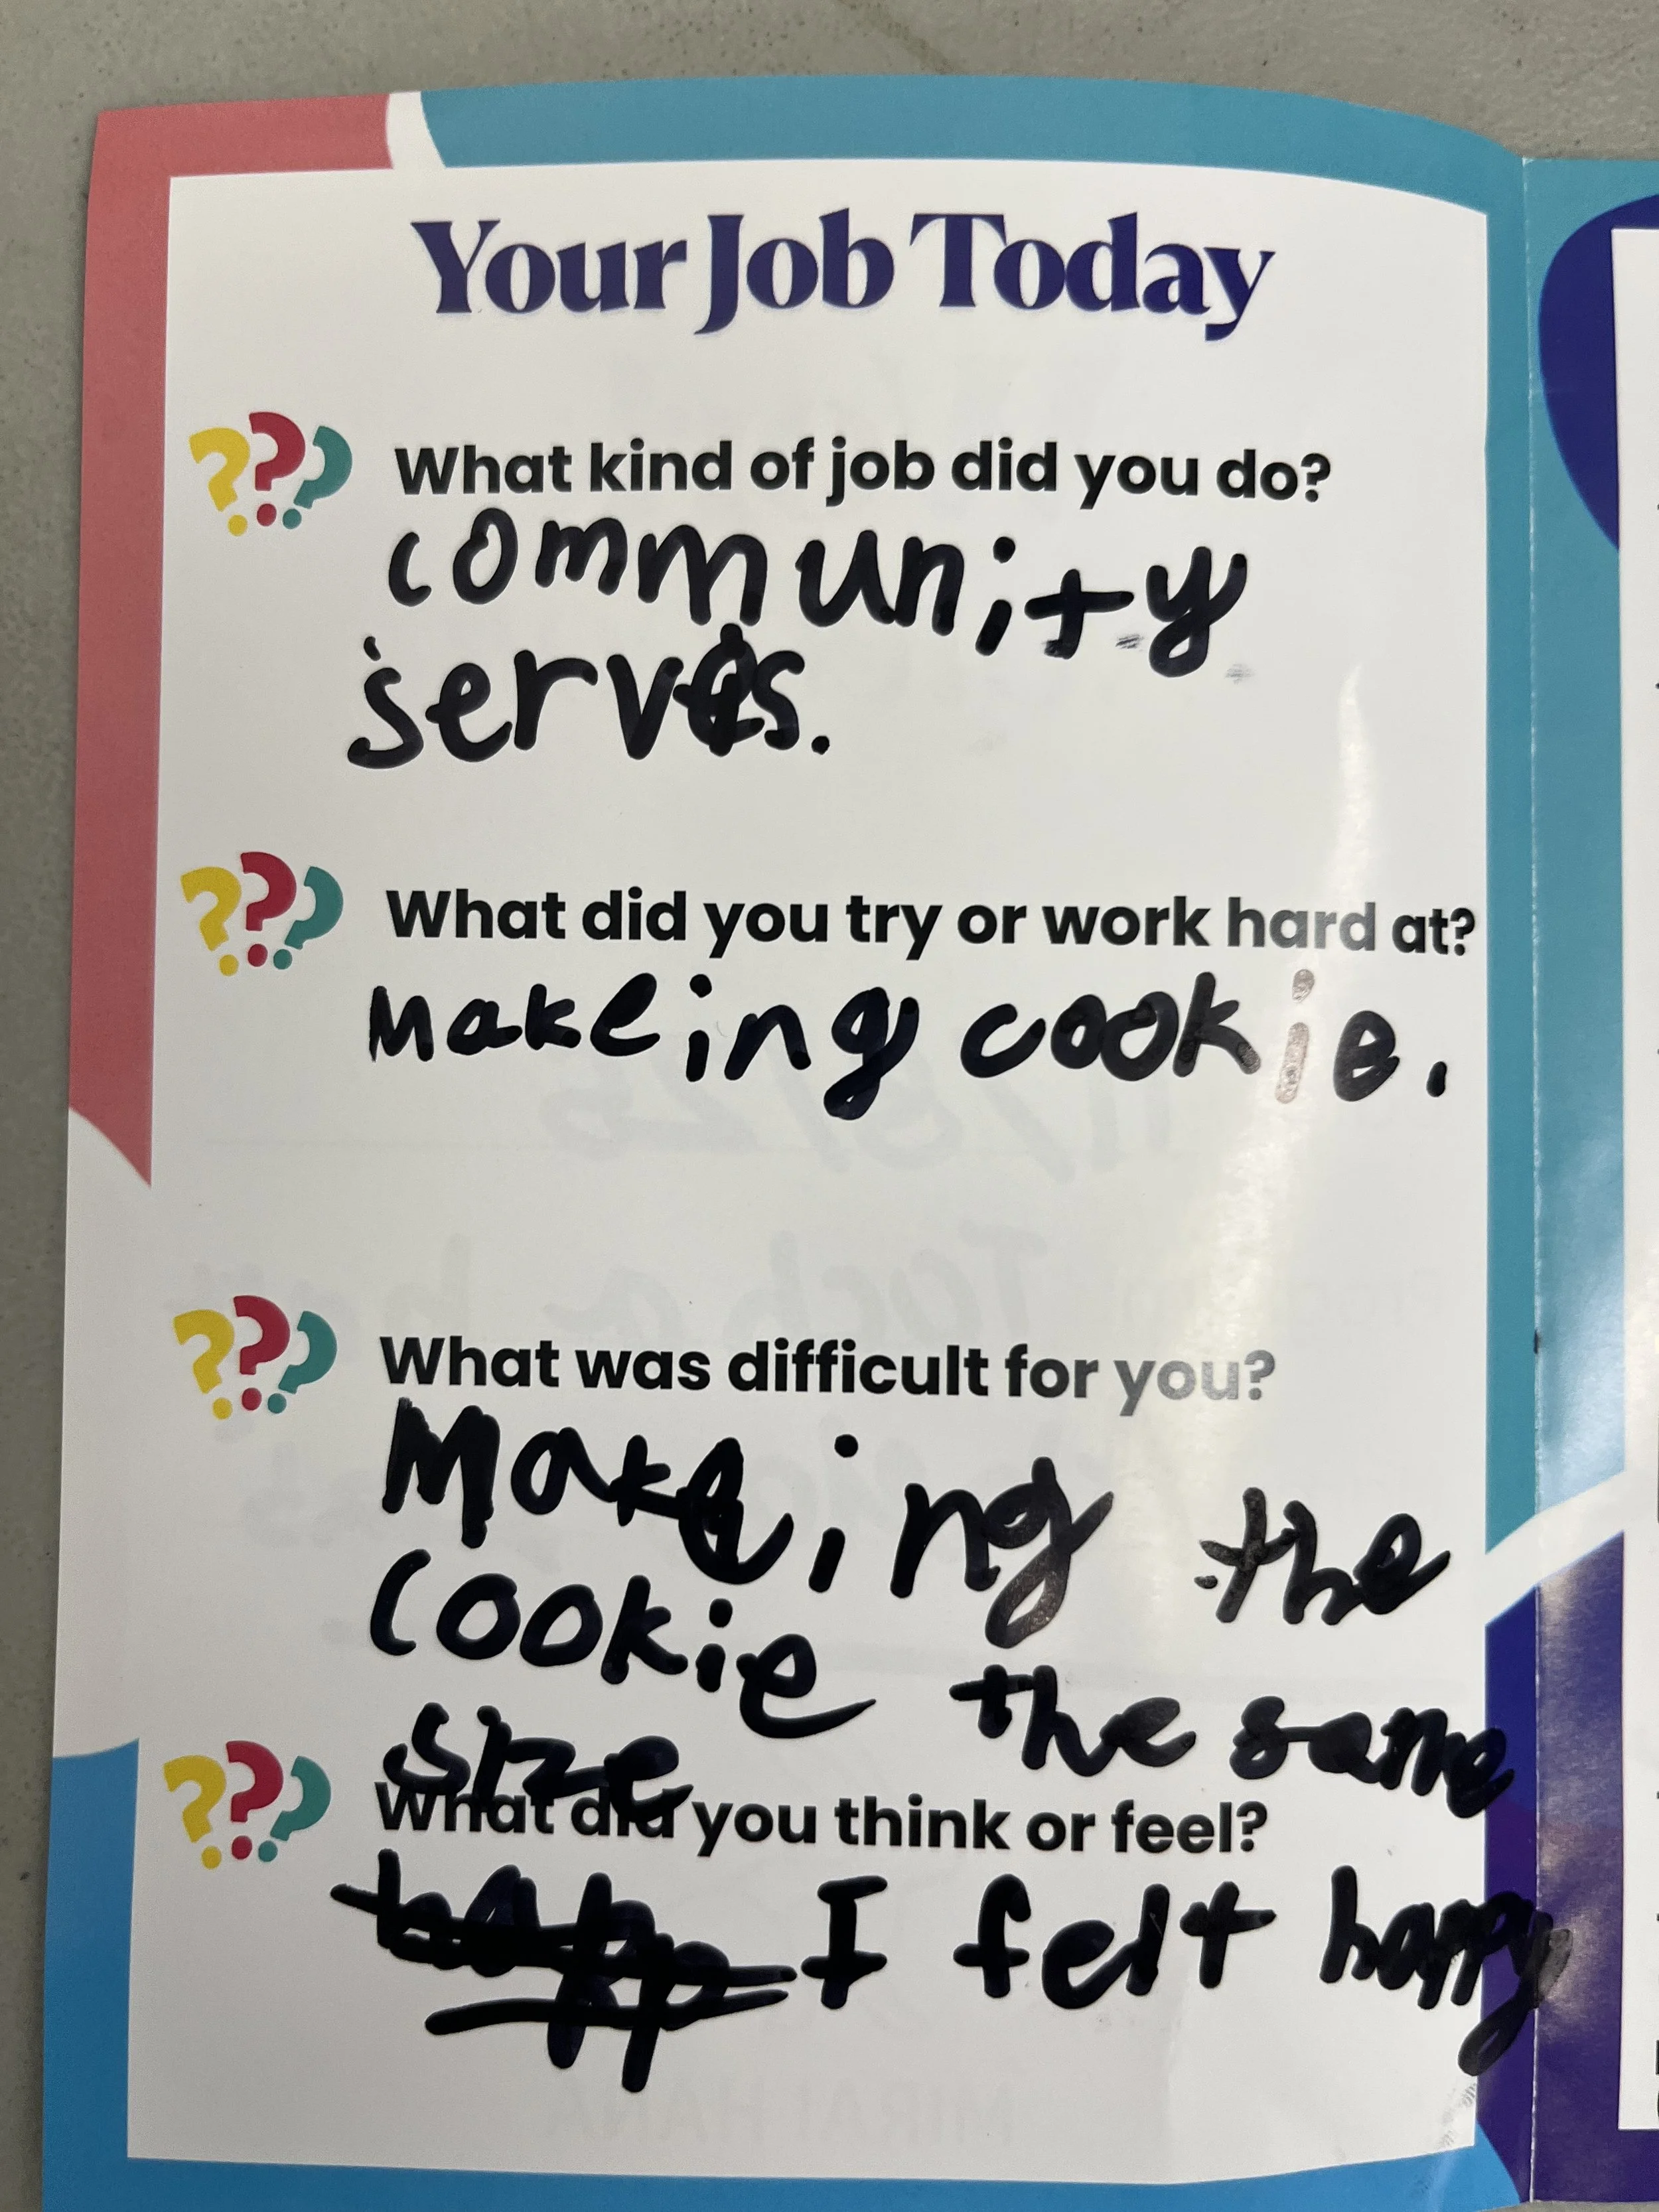 Your Job Today
What kind of job did you do?
community
serves.
What did you try or work hard at?
Makeing cookie.
What was difficult for you?
Makeing the
cookie the same
size
What did you think or feel?
I felt happy